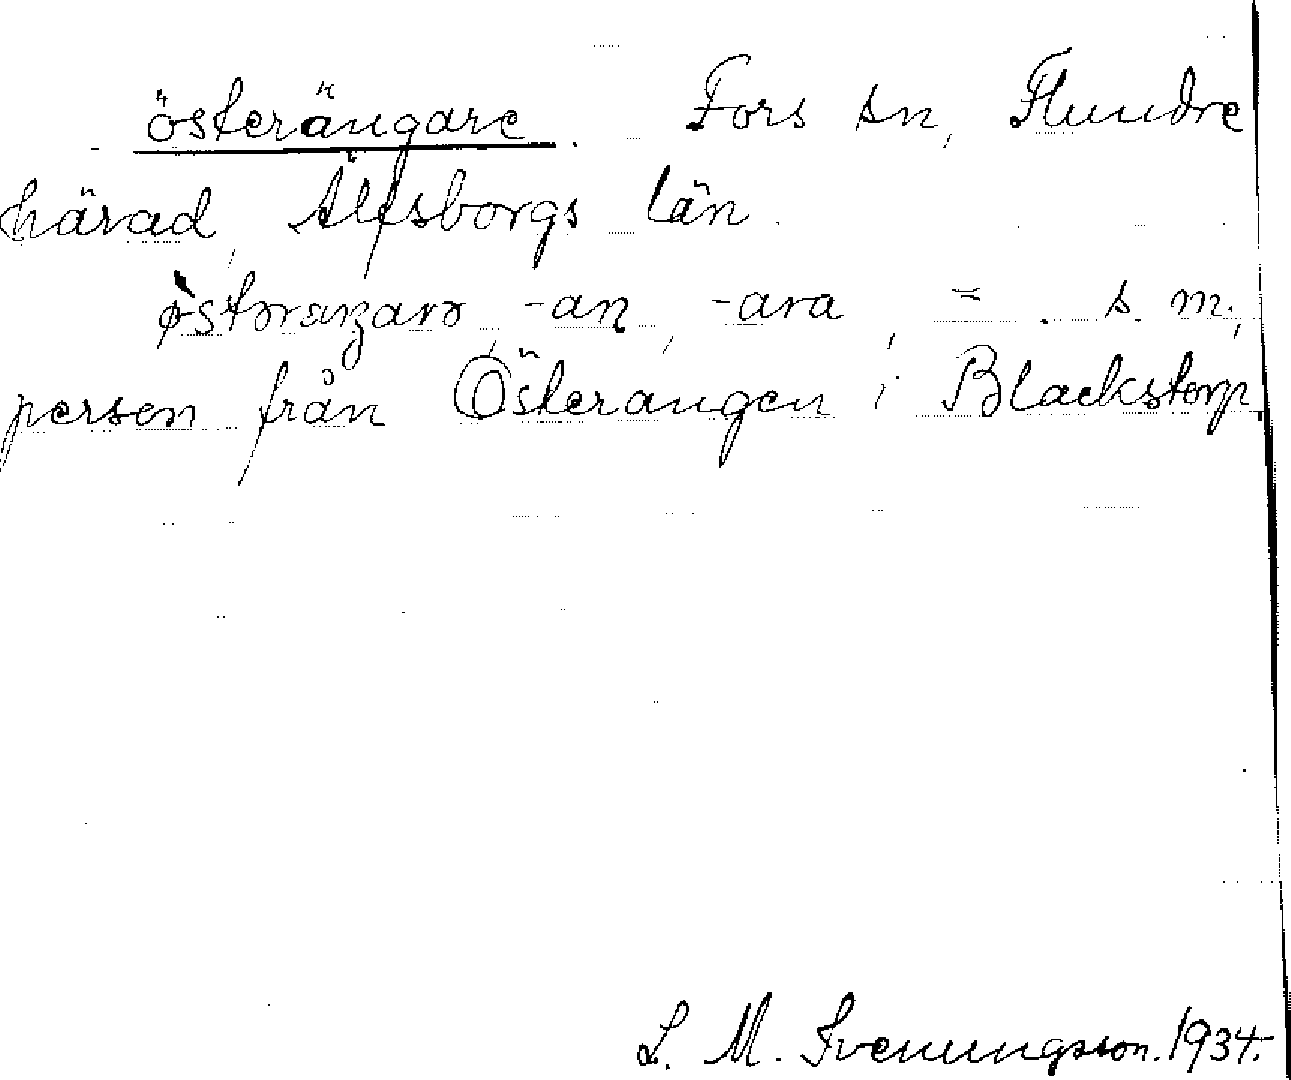 österängare. Fors sn, Flundre
härad, Älfsborgs län.
østəræŋarə, -an, -ara, = . s. m.,
person från Österängen i Blackstorp.
L. M. Svenungsson. 1934.